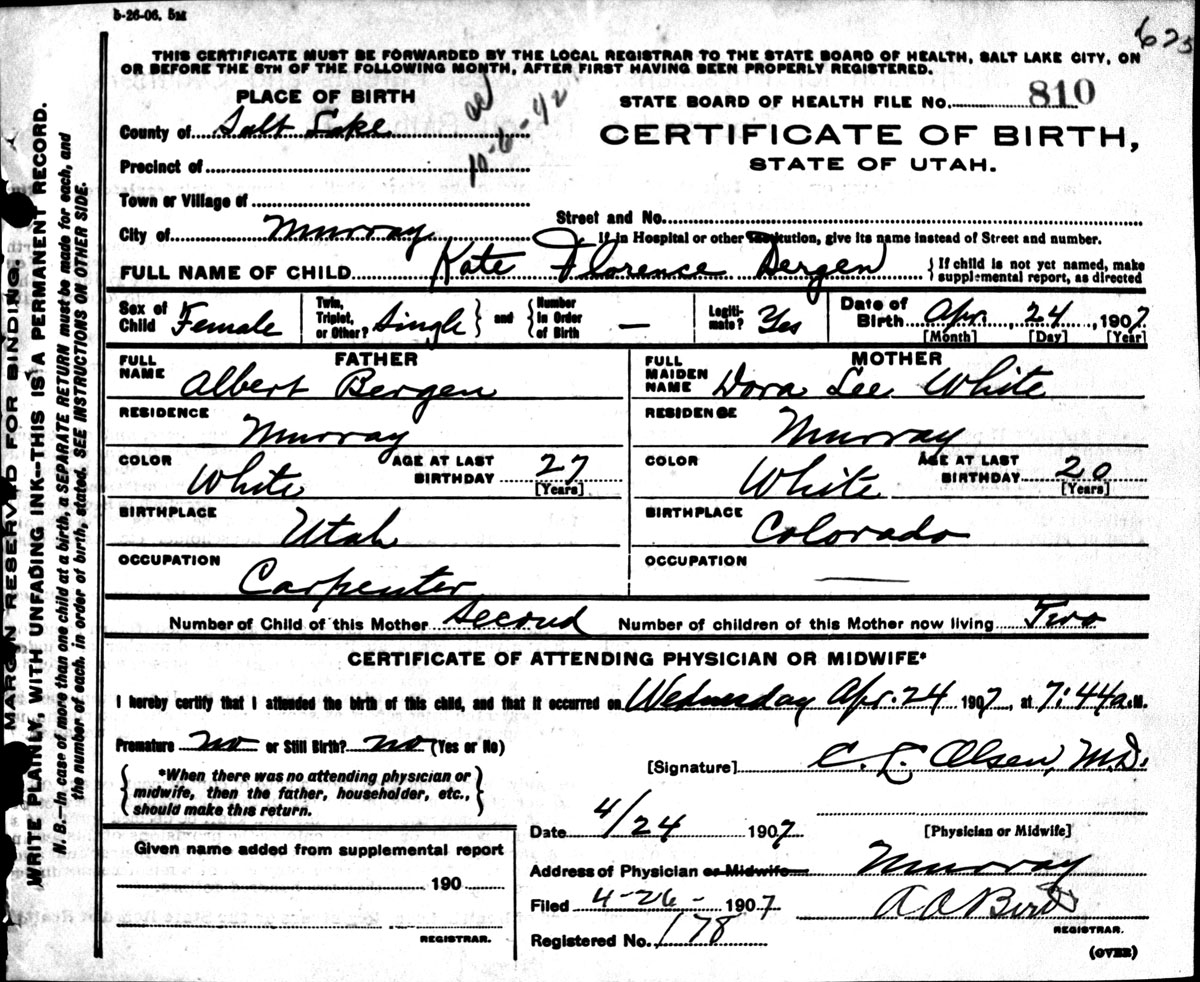 5-26-06. 5M
625
THIS CERTIFICATE MUST BE FORWARDED BY THE LOCAL REGISTRAR TO THE STATE BOARD OF HEALTH, SALT LAKE CITY, ON
OR BEFORE THE 5TH OF THE FOLLOWING MONTH, AFTER FIRST HAVING BEEN PROPERLY REGISTERED.
PLACE OF BIRTH
STATE BOARD OF HEALTH FILE No. 810
County of Salt Lake
10-6-42
CERTIFICATE OF BIRTH,
STATE OF UTAH.
Precinct of
Town or Village of
Street and No.
City of Murray
If in Hospital or other Institution, give its name instead of Street and number.
FULL NAME OF CHILD Kate Florence Bergen { If child is not yet named, make
supplemental report, as directed
Sex of Child Female
Twin, Triplet, or Other? Single } and { Number in Order of Birth —
Legiti-mate? Yes
Date of Birth Apr. , 24 , 1907
[Month] [Day] [Year]
FATHER
FULL NAME Albert Bergen
RESIDENCE Murray
COLOR White AGE AT LAST BIRTHDAY 27 [Years]
BIRTHPLACE Utah
OCCUPATION Carpenter
MOTHER
FULL MAIDEN NAME Dora Lee White
RESIDENCE Murray
COLOR White AGE AT LAST BIRTHDAY 20 [Years]
BIRTHPLACE Colorado
OCCUPATION —
Number of Child of this Mother Second Number of children of this Mother now living Two
CERTIFICATE OF ATTENDING PHYSICIAN OR MIDWIFE*
I hereby certify that I attended the birth of this child, and that it occurred on Wednesday Apr. 24 1907, at 7:44 a.M.
Premature no or Still Birth? no (Yes or No)
{ *When there was no attending physician or
midwife, then the father, householder, etc.,
should make this return. }
[Signature] C. L. Olsen, M.D.
Date 4/24 1907 [Physician or Midwife]
Given name added from supplemental report
190
REGISTRAR.
Address of Physician or Midwife Murray
Filed 4-26- 1907 A A Bird
REGISTRAR.
Registered No. 178
(OVER)
MARGIN RESERVED FOR BINDING.
WRITE PLAINLY, WITH UNFADING INK—THIS IS A PERMANENT RECORD.
N. B.—In case of more than one child at a birth, a SEPARATE RETURN must be made for each, and
the number of each, in order of birth, stated. SEE INSTRUCTIONS ON OTHER SIDE.